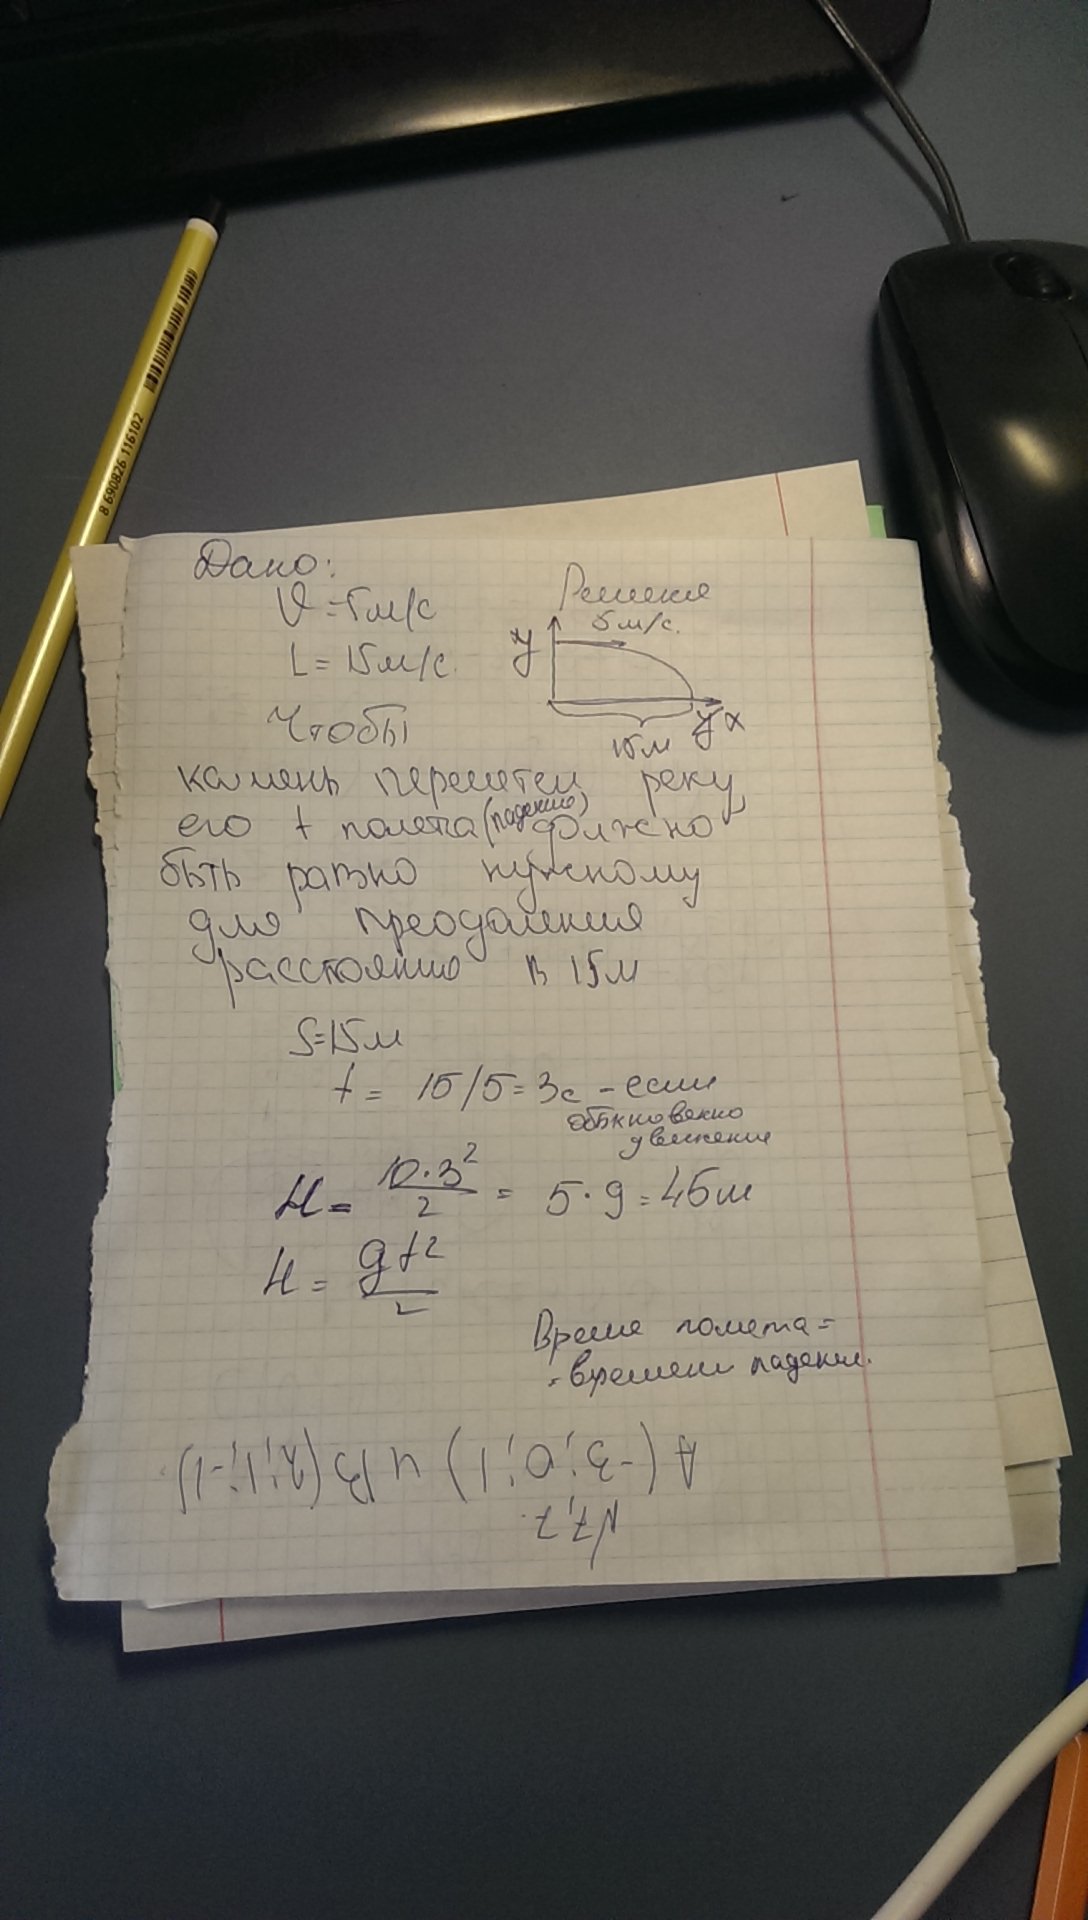 8 690826 116102
Дано:
V = 5м/с
L = 15м/с.
Решения
5 м/с.
y
x
15м
Чтобы
камень перелетел реку,
его t полета (падение) должно
быть равно нужному
для преодаления
расстояние в 15м
S=15м
t = 15/5 = 3с - если
обыкновенно
движение
H = 10·3²/2 = 5·9 = 45м
H = gt²/2
Время полета =
= времени падения.
№7.7.
A (-3; 0; 1) и B (2; 1; -1)